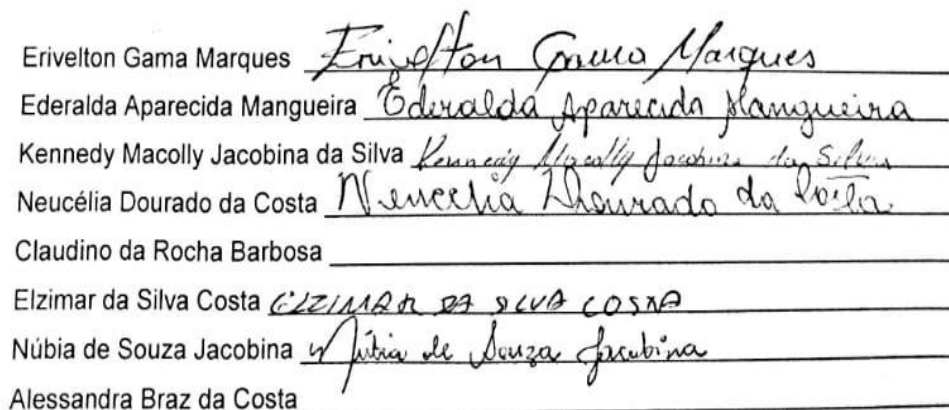 Erivelton Gama Marques Erivelton Gama Marques
Ederalda Aparecida Mangueira Ederalda Aparecida Mangueira
Kennedy Macolly Jacobina da Silva Kennedy Macolly Jacobina da Silva
Neucélia Dourado da Costa Neucelia Dourado da Costa
Claudino da Rocha Barbosa
Elzimar da Silva Costa ELZIMAR DA SILVA COSTA
Núbia de Souza Jacobina Núbia de Souza Jacobina
Alessandra Braz da Costa